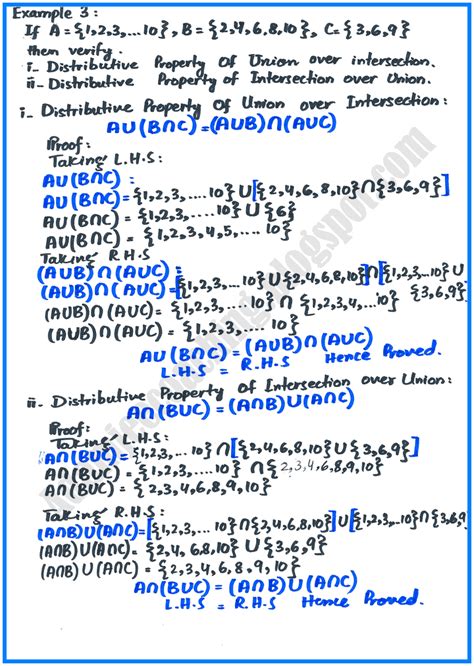 Example 3:
If A = {1,2,3,... 10}, B = {2,4,6,8,10}, C = {3,6,9}
then verify.
i- Distributive Property of Union over intersection.
ii- Distributive Property of Intersection over Union.
i- Distributive Property Of Union over Intersection:
A∪(B∩C)=(A∪B)∩(A∪C)
Proof:
Taking L.H.S:
A∪(B∩C):
A∪(B∩C)={1,2,3,.... 10} ∪[{2,4,6,8,10}∩{3,6,9}]
A∪(B∩C)={1,2,3,.... 10} ∪ {6}
A∪(B∩C)={1,2,3,4,5,.... 10}
Taking R.H.S
(A∪B)∩(A∪C):
(A∪B)∩(A∪C)=[{1,2,3,... 10}∪{2,4,6,8,10}]∩[{1,2,3,...10}∪
{3,6,9}]
(A∪B)∩(A∪C)={1,2,3,.... 10} ∩ {1,2,3,4,... 10}
(A∪B)∩(A∪C)={1,2,3,.... 10}
A∪(B∩C)=(A∪B)∩(A∪C)
L.H.S = R.H.S Hence Proved.
ii- Distributive Property of Intersection over Union:
A∩(B∪C)=(A∩B)∪(A∩C)
Proof:
Taking L.H.S:
A∩(B∪C)={1,2,3,... 10}∩[{2,4,6,8,10}∪{3,6,9}]
A∩(B∪C)={1,2,3,.... 10} ∩{2,3,4,6,8,9,10}
A∩(B∪C)={2,3,4,6,8,9,10}
Taking R.H.S:
(A∩B)∪(A∩C)=[{1,2,3,... 10}∩{2,4,6,8,10}]∪[{1,2,3,...10}∩{3,6,9}
(A∩B)∪(A∩C)={2,4,6,8,10} ∪ {3,6,9}
(A∩B)∪(A∩C)={2,3,4,6,8,9,10}
A∩(B∪C)=(A∩B)∪(A∩C)
L.H.S = R.H.S Hence Proved.